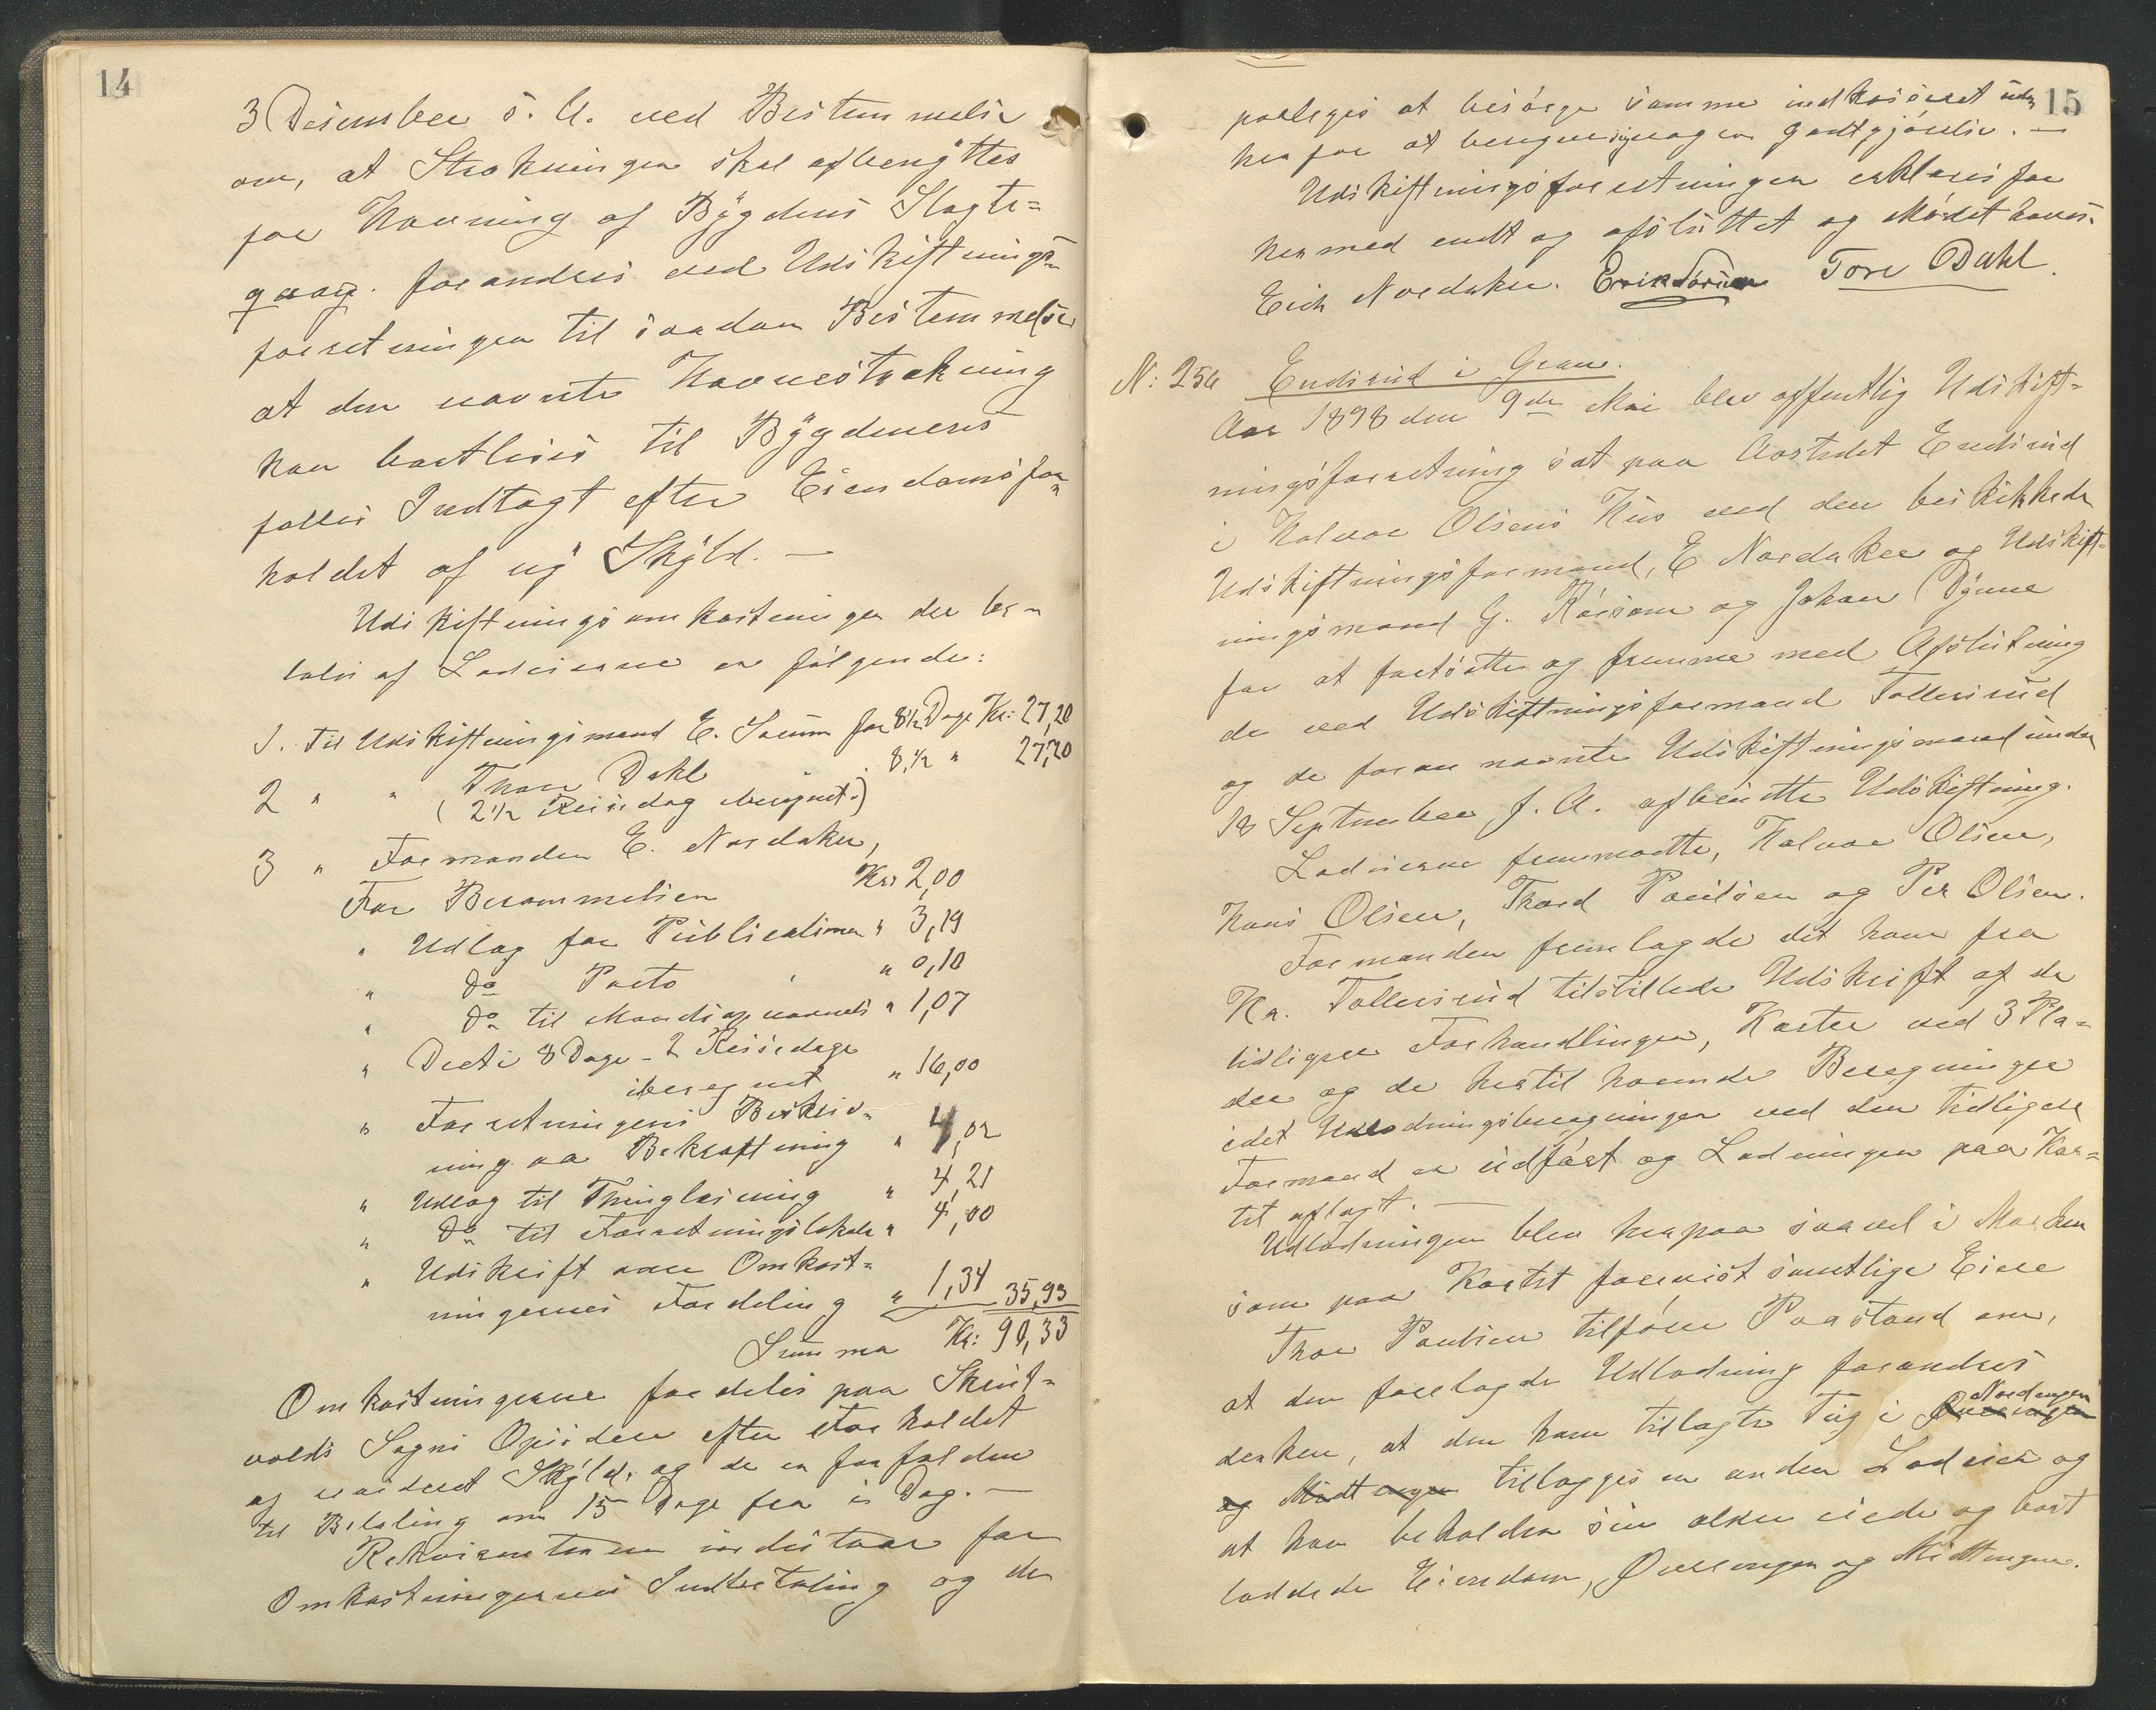 14
3 Desember s. A. ved Bestemmelse
om, at Strækningen skal afbenyttes
for Havning af Bygdens Slagte-
qvæg. forandres ved Udskiftnings-
forretningen til saadan Bestemmelse
at den nævnte Havnestrækning
kan bortleies til Bygdenens
fælles Indtægt efter Eiendomsfor-
holdet af ny Skyld. —
Udskiftningsomkostningen der be-
tales af Lodeierne er følgende:
1. Til Udskiftningsmand E. Sørum for 8½ Dage Kr: 27,20
2 " " Thore Dahl 8,½ " 27,20
( 2½ Reisedag beregnet.)
3 " Formanden E. Nordaker,
For Berammelsen Kr: 2,00
" Udlæg for Publicationen " 3,19
" do Porto " 0,10
" do til Mandsopnævnels " 1,07
" Diæt i 8 Dage - 2 Reisedage
iberegnet " 16,00
" Forretningens Beskriv-
ning og Bekræftning " 4,02
" Udlæg til Thinglæsning " 4,21
" do til Forretningslokale " 4,00
" Udskrift over Omkost-
ningernes Fordeling " 1,34 35,93
Summa Kr: 90,33
Omkostningerne fordeles paa Skrut-
volds Sogns Opsidere efter Forholdet
af revideret Skyld, og de er forfaldne
til Betaling om 15 Dage fra i Dag. —
Rekvirenterne indestaar for
Omkostningernes Indbetaling og de
15
paalægges at besørge samme indkasseret uden
herfor at beregne sig nogen Godtgjørelse. —
Udskiftningsforretningen erklæres for
hermed endt og afsluttet og Mødet hæves.
Erik Nordaker. Erik Sørum Tore Dahl.
N: 254 Endsrud i Gran.
Aar 1898 den 9de Mai blev offentlig Udskift-
ningsforretning sat paa Aastedet Endsrud
i Halvor Olsens Hus ved den beskikkede
Udskiftningsformand, E Nordaker og Udskift-
ningsmænd G. Røisum og Johan Dynne
for at fortsætte og fremme med Afslutning
de ved Udskiftningsformand Tollersrud
og de foran nævnte Udskiftningsmænd under
18 September f. A. afbrudte Udskiftning.
Lodeierne fremmødte, Halvor Olsen,
Hans Olsen, Thord Poulsen og Per Olsen.
Formanden fremlagde det ham fra
Kr. Tollersrud tilstillede Udskrift af de
tidligere Forhandlinger, Karter ved 3 Pla-
der og de hertil hørende Beregninger
idet Udlodningsberegningen ved den tidligere
Formand er udført og Lodningen paa Kar-
tet aflagt. —
Udlodningen blev herpaa saavel i Marken
som paa Kartet forevist samtlige Eiere
Thor Poulsen tilføier Paastand om,
at den forelagde Udlodning forandres
derhen, at den ham tillagte Teig i Øvreengen Nordengen
og Midtengen tillægges en anden Lodeier og
at han beholder sin ældre eiede og bort
loddede Eiendom, Øvreengen og Midtengen.